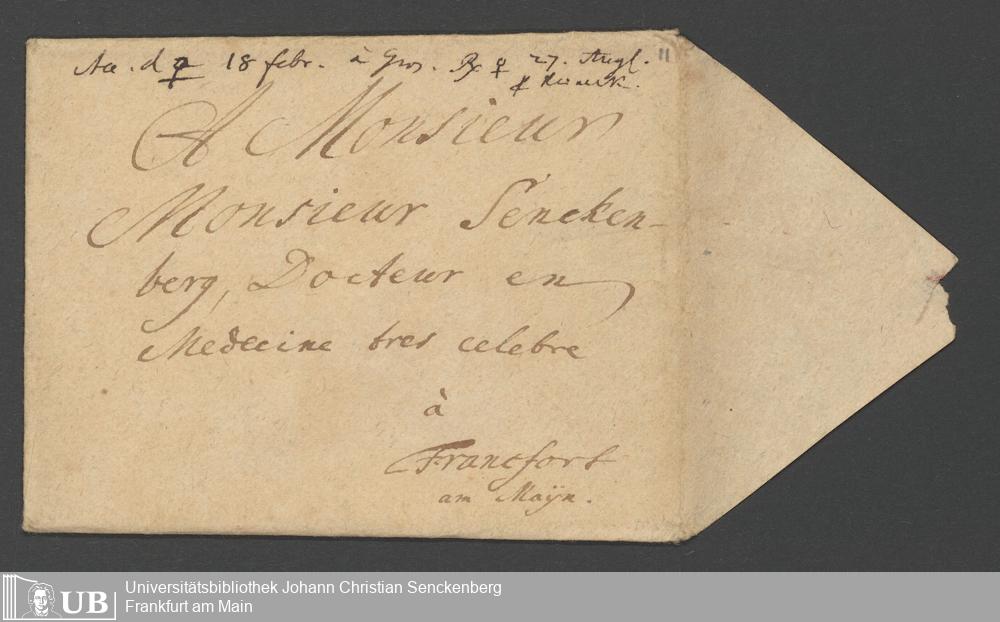 Acc. d ♀ 18 febr. à Gros. ♀ 27. Aug.
11
A Monsieur
Monsieur Sencken-
berg, Docteur en
Medecine tres celebre
à
Francfort
am Maÿn.
UB
Universitätsbibliothek Johann Christian Senckenberg
Frankfurt am Main